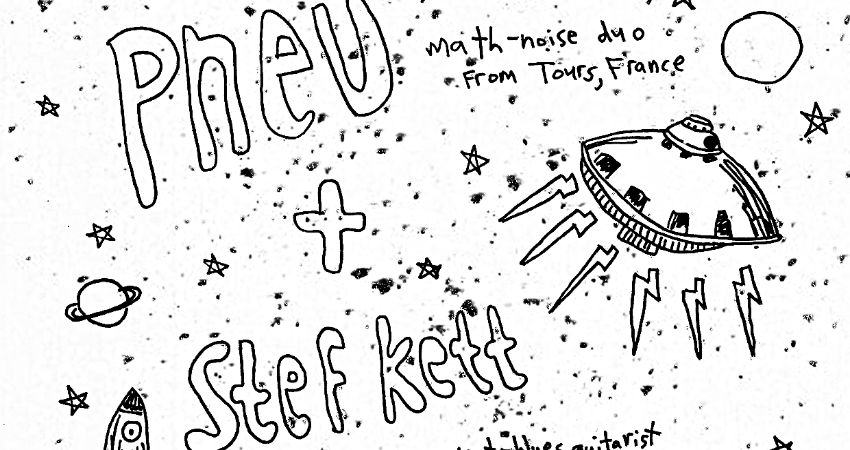 PNEU
math-noise duo
From Tours, France
+
Stef kett
guitarist